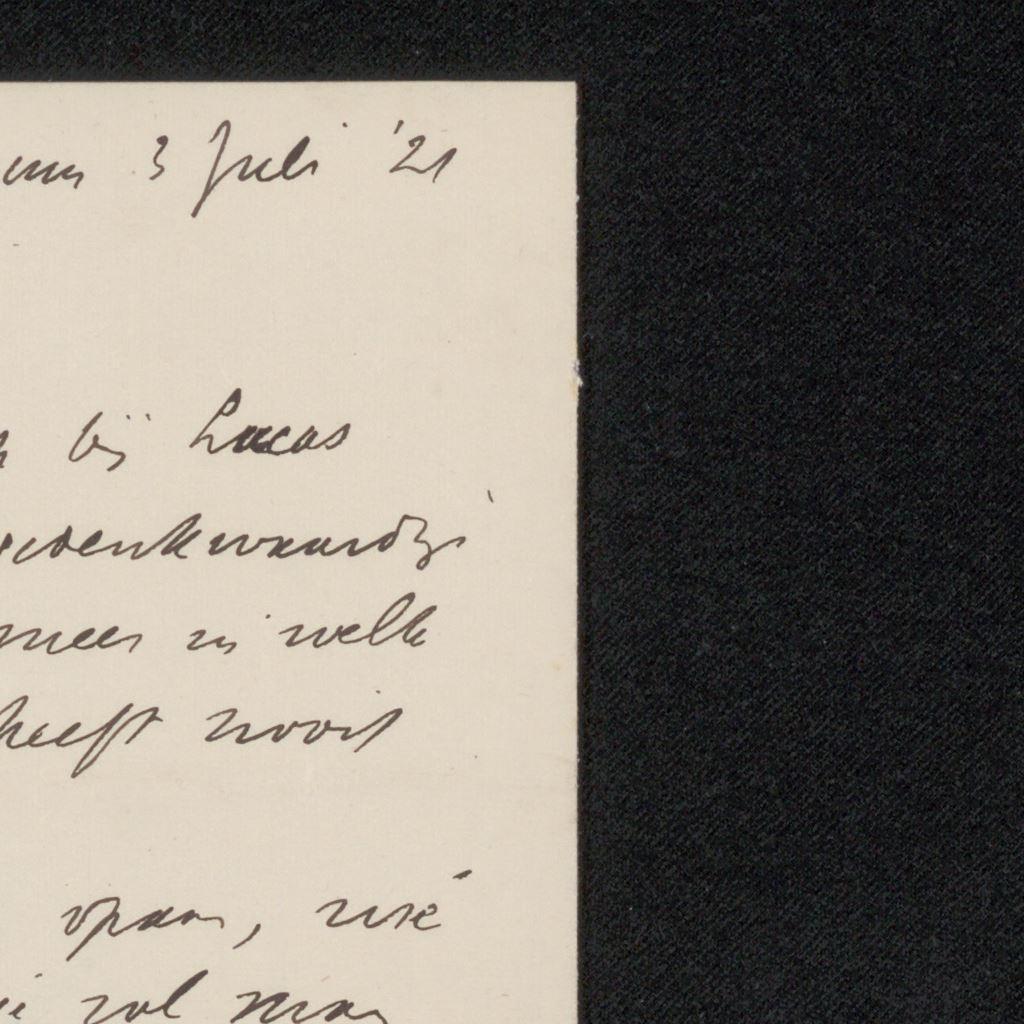 3 Juli '21
bij Lucas
gedenkwaardige
meer in welk
heeft nooit
spaan,
zal maar